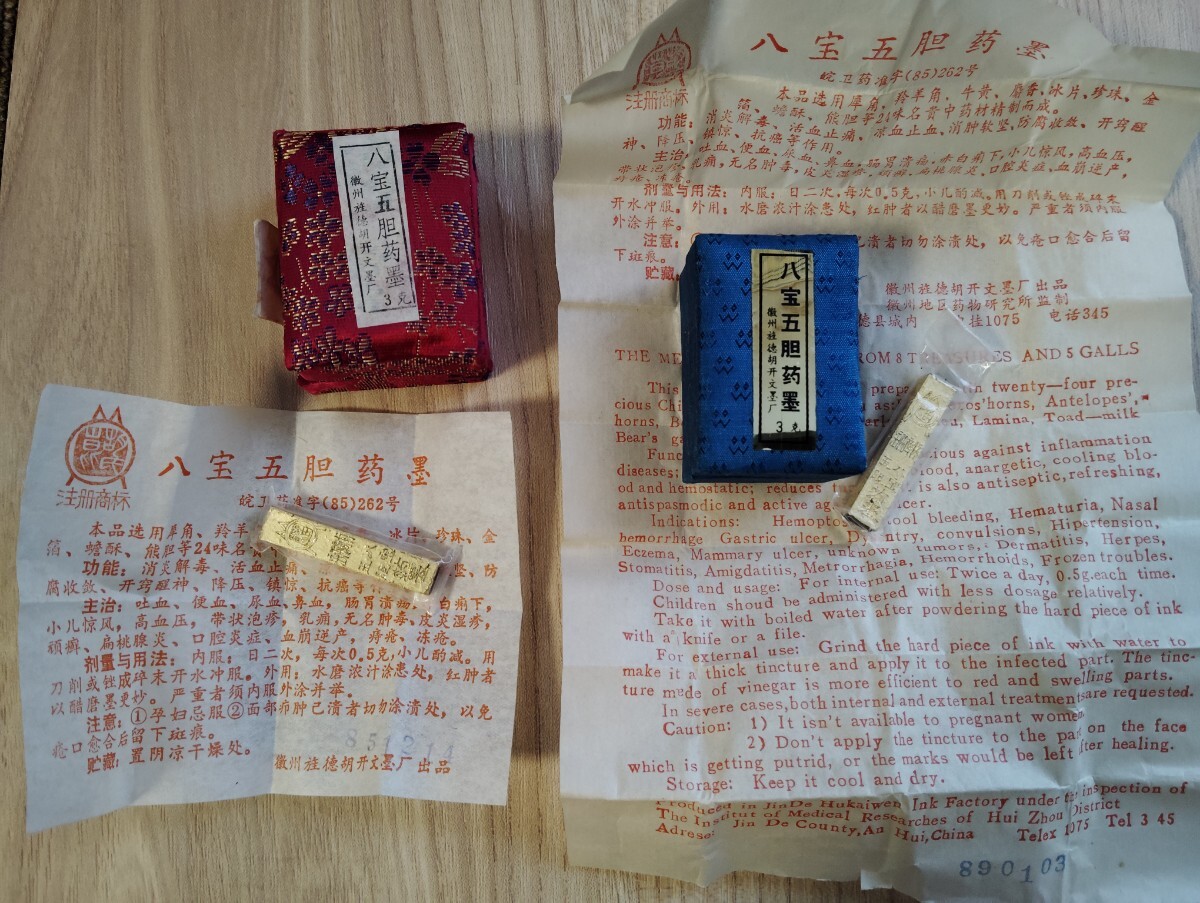 八宝五胆药墨
徽州旌德胡开文墨厂
3克
胡氏
注册商标
八宝五胆药墨
皖卫药准字(85)262号
本品选用犀角、羚羊
冰片、珍珠、金
箔、蟾酥、熊胆等24味名
功能：消炎解毒、活血止痛
坚、防
腐收敛、开窍醒神、降压、镇惊、抗癌等
主治：吐血、便血、尿血、鼻血，肠胃溃疡
白痢下，
小儿惊风，高血压，带状泡疹，乳痛，无名肿毒、皮炎湿疹，
顽癣、扁桃腺炎、口腔炎症、血崩逆产，痔疮、冻疮。
剂量与用法：内服：日二次，每次0.5克，小儿酌减。用
刀削或锉成碎末开水冲服。外用：水磨浓汁涂患处，红肿者
以醋磨墨更妙。严重者须内服外涂并举。
注意：①孕妇忌服②面部疖肿已溃者切勿涂溃处，以免
疮口愈合后留下斑痕。
贮藏：置阴凉干燥处。
851214
徽州旌德胡开文墨厂出品
注册商标
八宝五胆药墨
皖卫药准字(85)262号
本品选用犀角，羚羊角，牛黄、麝香、冰片、珍珠、金
箔、蟾酥、熊胆等24味名贵中药材精制而成。
功能：消炎解毒、活血止痛、凉血止血、消肿软坚，防腐收敛、开窍醒
神、降压、镇惊、抗癌等作用。
主治：吐血、便血、尿血、鼻血、肠胃溃疡、赤白痢下，小儿惊风，高血压，
带状泡疹、乳痛，无名肿毒，皮炎湿疹、顽癣、扁桃腺炎、口腔炎症，血崩逆产，
剂量与用法：内服：日二次，每次0.5克，小儿酌减。用刀削或锉成碎末
开水冲服。外用：水磨浓汁涂患处，红肿者以醋磨墨更妙。严重者须内服
外涂并举。
注意：
已溃者切勿涂溃处，以免疮口愈合后留
下斑痕。
贮藏：
徽州旌德胡开文墨厂出品
徽州地区药物研究所监制
德县城内 挂1075 电话345
八宝五胆药墨
徽州旌德胡开文墨厂
3克
THE ME
ROM 8 TREASURES AND 5 GALLS
This
prepa
th twenty—four pre-
cious Chi
as:
ros'horns, Antelopes',
horns, Be
erl
u, Lamina, Toad—milk
Bear's ga
Func
cious against inflammation
diseases;
blood, anargetic, cooling blo-
od and hemostatic; reduces
is also antiseptic, refreshing,
antispasmodic and active ag
cer.
Indications: Hemopto
ool bleeding, Hematuria, Nasal
hemorrhage Gastric ulcer, Dy
ntry, convulsions, Hipertension,
Eczema, Mammary ulcer, unknown tumors, Dermatitis, Herpes,
Stomatitis, Amigdatitis, Metrorrhagia, Hemorrhoids, Frozen troubles.
Dose and usage: For internal use: Twice a day, 0.5g.each time.
Children shoud be administered with less dosage relatively.
Take it with boiled water after powdering the hard piece of ink
with a knife or a file.
For external use: Grind the hard piece of ink with water to
make it a thick tincture and apply it to the infected part. The tinc-
ture mede of vinegar is more efficient to red and swelling parts.
In severe cases, both internal and external treatments are requested.
Caution: 1) It isn't available to pregnant women
2) Don't apply the tincture to the part on the face
which is getting putrid, or the marks would be left after healing.
Storage: Keep it cool and dry.
Produced in JinDe Hukaiwen Ink Factory under the inspection of
The Institut of Medical Researches of Hui Zhou District
Adrese: Jin De County, An Hui, China Telex 1075 Tel 3 45
890103